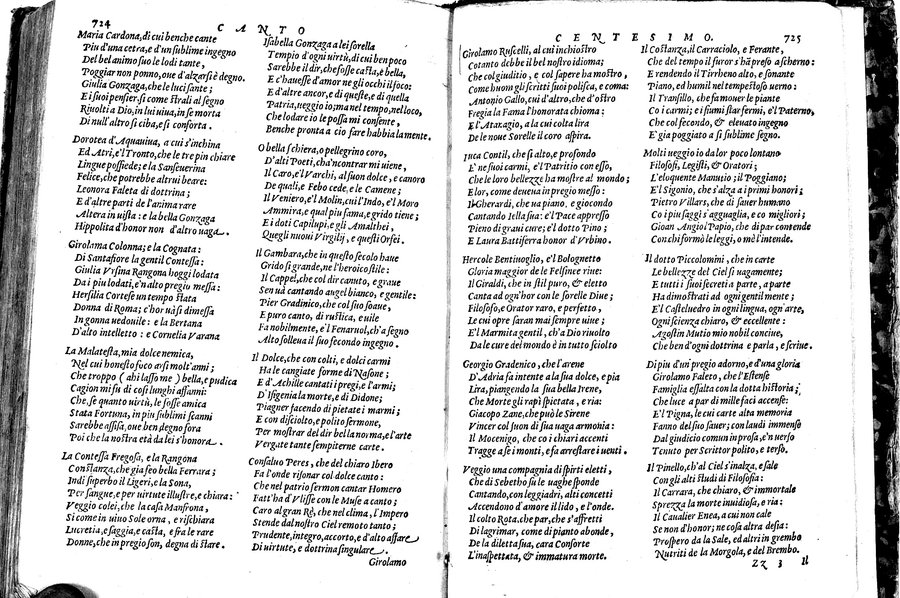 724 CANTO
Maria Cardona, di cui benche cante
Piu d'una cetra, e d'un sublime ingegno
Del bel animo suo le lodi tante,
Poggiar non ponno, oue d'alzarsi è degno.
Giulia Gonzaga, che le luci sante;
E i suoi pensier, si come strali al segno
Riuolti a Dio, in lui uiua, in se morta
Di null'altro si ciba, e si conforta.
Dorotea d'Aquauiua, a cui s'inchina
Ed Atri, e'l Tronto, che le tre pin chiare
Lingue possiede; e la Sanseuerina
Felice, che potrebbe altrui beare:
Leonora Faleta di dottrina;
E d'altre parti de l'anima rare
Altera in uista: e la bella Gonzaga
Hippolita d'honor non d'altro uaga.
Girolama Colonna; e la Cognata:
Di Santafiore la gentil Contessa:
Giulia Vrsina Rangona hoggi lodata
Da i piu lodati, e'n alto pregio messa:
Hersilia Cortese un tempo stata
Donna di Roma; c'hor uà sì dimessa
In gonna uedouile: e la Bertana
D'alto intelletto: e Cornelia Varana
La Malatesta, mia dolce nemica,
Nel cui honesto foco arsi molt'anni;
Che troppo (ahi lasso me) bella, e pudica
Cagion mi fu di così lunghi affanni:
Che, se quanto uirtù, le fosse amica
Stata Fortuna, in piu sublimi scanni
Sarebbe assisa, oue ben degno fora
Poi che la nostra età da lei s'honora.
La Contessa Fregosa, e la Rangona
Constanza, che gia feo bella Ferrara;
Indi superbo il Ligeri, e la Sona,
Per sangue, e per uirtute illustre, e chiara:
Veggio colei, che la casa Manfrona,
Si come in uiuo Sole orna, e rischiara
Lucretia, e saggia, e casta, e fra le rare
Donne, che in pregio son, degna di stare.
Isabella Gonzaga a lei sorella
Tempio d'ogni uirtù, di cui ben poco
Sarebbe il dir, che fosse casta, è bella,
E c'hauesse d'amor ne gli occhi il foco:
E d'altre ancor, e di queste, e di quella
Patria, ueggio io; ma nel tempo, nel loco,
Che lodare io le possa mi consente,
Benche pronta a cio fare habbia la mente.
O bella schiera, o pellegrino coro,
D'alti Poeti, cha'ncontrar mi uiene,
Il Caro, e'l Varchi, al suon dolce, e canoro
De quali, e Febo cede, e le Camene;
Il Veniero, e'l Molin, cui l'Indo, e'l Moro
Ammira, e qual piu fama, e grido tiene;
E i doti Capilupi, e gli Amalthei,
Quegli nuoui Virgilij, e questi Orfei.
Il Gambara, che in questo secolo haue
Grido sì grande, ne l'heroico stile:
Il Cappel, che col dir canuto, e graue
Sen uà cantando augel bianco, e gentile:
Pier Gradinico, che col suo soaue,
E puro canto, di rustica, e uile
Fa nobilmente, e'l Fenaruol, ch'a segno
Alto solleua il suo secondo ingegno.
Il Dolce, che con colti, e dolci carmi
Ha le cangiate forme di Nasone;
E d'Achille cantati i pregi, e l'armi;
D'Ifigenia la morte, e di Didone;
Piagner facendo di pietate i marmi;
E con disciolto, e polito sermone,
Per mostrar del dir bella norma, e l'arte
Vergate tante sempiterne carte.
Consaluo Peres, che del chiaro Ibero
Fa l'onde risonar col dolce canto:
Che nel patrio sermon cantar Homero
Fatt'ha d'Vlisse con le Muse a canto;
Caro al gran Rè, che nel clima, l'Impero
Stende dal nostro Ciel remoto tanto;
Prudente, integro, accorto, e d'alto affare
Di uirtute, e dottrina singulare.
Girolamo
CENTESIMO. 725
Girolamo Ruscelli, al cui inchiostro
Cotanto debbe il bel nostro idioma;
Che col giuditio, e col sapere ha mostro,
Come huom gli scritti suoi polisca, e coma:
Antonio Gallo, cui d'altro, che d'ostro
Fregia la Fama l'honorata chioma:
E l'Atanagio, a la cui colta lira
De le noue Sorelle il coro aspira.
Luca Contil, che sì alto, e profondo
E' ne suoi carmi, e'l Patritio con esso,
Che le lor bellezze ha mostre al mondo;
E lor, come deueua in pregio messo:
Il Gherardi, che ua piano, e giocondo
Cantando Iella sua: e'l Pace appresso
Pieno di graui cure; e'l dotto Pino;
E Laura Battiferra honor d'Vrbino.
Hercole Bentiuoglio, e'l Bolognetto
Gloria maggior de le Felsinee riue:
Il Giraldi, che in stil puro, & eletto
Canta ad ogn'hor con le sorelle Diue;
Filosofo, e Orator raro, e perfetto,
Le cui opre saran mai sempre uiue;
E'l Marmita gentil, ch'a Dio riuolto
Da le cure del mondo è in tutto sciolto
Georgio Gradenico, che l'arene
D'Adria fa intente a la sua dolce, e pia
Lira, piangendo la sua bella Irene,
Che Morte gli rapì spietata, e ria:
Giacopo Zane, che può le Sirene
Vincer col suon di sua uaga armonia:
Il Mocenigo, che co i chiari accenti
Tragge a se i monti, e fa arrestare i uenti.
Veggio una compagnia di spirti eletti,
Che di Sebetho fa le uaghe sponde
Cantando, con leggiadri, alti concetti
Accendono d'amore il lido, e l'onde.
Il colto Rota, che par, che s'affretti
Di lagrimar, come di pianto abonde,
De la diletta sua, cara Consorte
L'inaspettata, & immatura morte.
Il Costanza, il Carraciolo, e Ferante,
Che del tempo il furor s'hà preso a scherno:
E rendendo il Tirrheno alto, e sonante
Piano, ed humil nel tempestoso uerno:
Il Transillo, che fa mouer le piante
Co i carmi; e i fiumi star fermi, e'l Paterno,
Che col fecondo, & eleuato ingegno
E' gia poggiato a sì sublime segno.
Molti ueggio io da lor poco lontano
Filosofi, Legisti, & Oratori;
L'eloquente Manutio; il Poggiano;
E'l Sigonio, che s'alza a i primi honori;
Pietro Villars, che di sauer humano
Co i piu saggi s'agguaglia, e co migliori;
Gioan Angiol Papio, che di par contende
Con chi formò le leggi, o me l'intende.
Il dotto Piccolomini, che in carte
Le bellezze del Ciel sì uagamente;
E tutti i suoi secreti a parte, a parte
Ha dimostrati ad ogni gentil mente;
E'l Casteluedro in ogni lingua, ogn'arte,
Ogni scienza chiaro, & eccellente:
Agostin Mutio mio nobil conciue,
Che ben d'ogni dottrina e parla, e scriue.
Di piu d'un pregio adorno, e d'una gloria
Girolamo Faleto, che l'Estense
Famiglia essalta con la dotta historia;
Che luce a par di mille faci accense:
E'l Pigna, le cui carte alta memoria
Fanno del suo sauer; con laudi immenso
Dal giudicio comun in prosa, e'n uerso
Tenuto per Scrittor polito, e terso.
Il Pinello, ch'al Ciel s'inalza, e sale
Con gli alti studi di Filosofia:
Il Carrara, che chiaro, & immortale
Sprezza la morte inuidiosa, e ria:
Il Caualier Enea, a cui non cale
Se non d'honor; ne cosa altra desia:
Prospero da la Sale, ed altri in grembo
Nutriti de la Morgola, e del Brembo.
Zz 3 Il